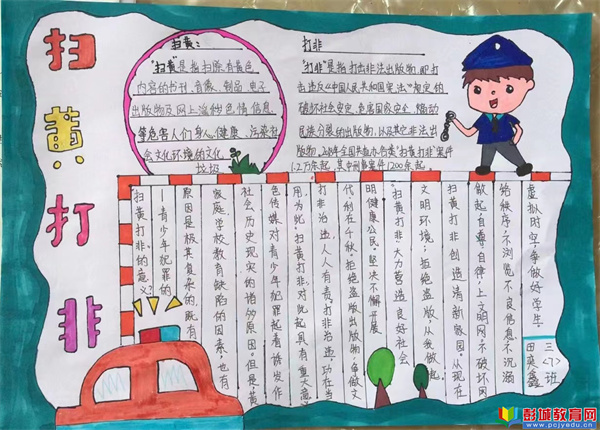 扫黄打非
扫黄：
"扫黄"是指扫除有黄色
内容的书刊、音像、制品、电子
出版物及网上淫秽色情信息
等危害人们身心健康、污染社
会文化环境的文化
垃圾
打非：
"打非"是指打击非法出版物，即打
击违反《中国人民共和国宪法》规定的
破坏社会安定、危害国家安全、煽动
民族分裂的出版物，以及其它非法出
版物，
1.2万余起，其中刑事案件1200余起。
虚拟时空，争做好学生
始秩序，不浏览不良信息不沉溺
做起，自尊自律，上文明网，不破坏网
扫黄打非创造清新校园，从现在
文明环境；拒绝盗版，从我做起。
"扫黄打非"，大力营造良好社会
明健康公民。坚决不懈开展
代利在千秋，拒绝盗版出版物，争做文
打非治违，人人有责，打非治违，功在当
用。为此，扫黄打非，对犯起具有重大意
色传媒对青少年犯罪起着诱发作
社会历史现实的诸多原因。但是，黄
家庭、学校教育缺陷的因素，也有
原因是极其复杂的，既有
——青少年犯罪的
扫黄打非的意义？
三〈7〉班
田奕鑫
彭城教育网
www.pcjyedu.cn